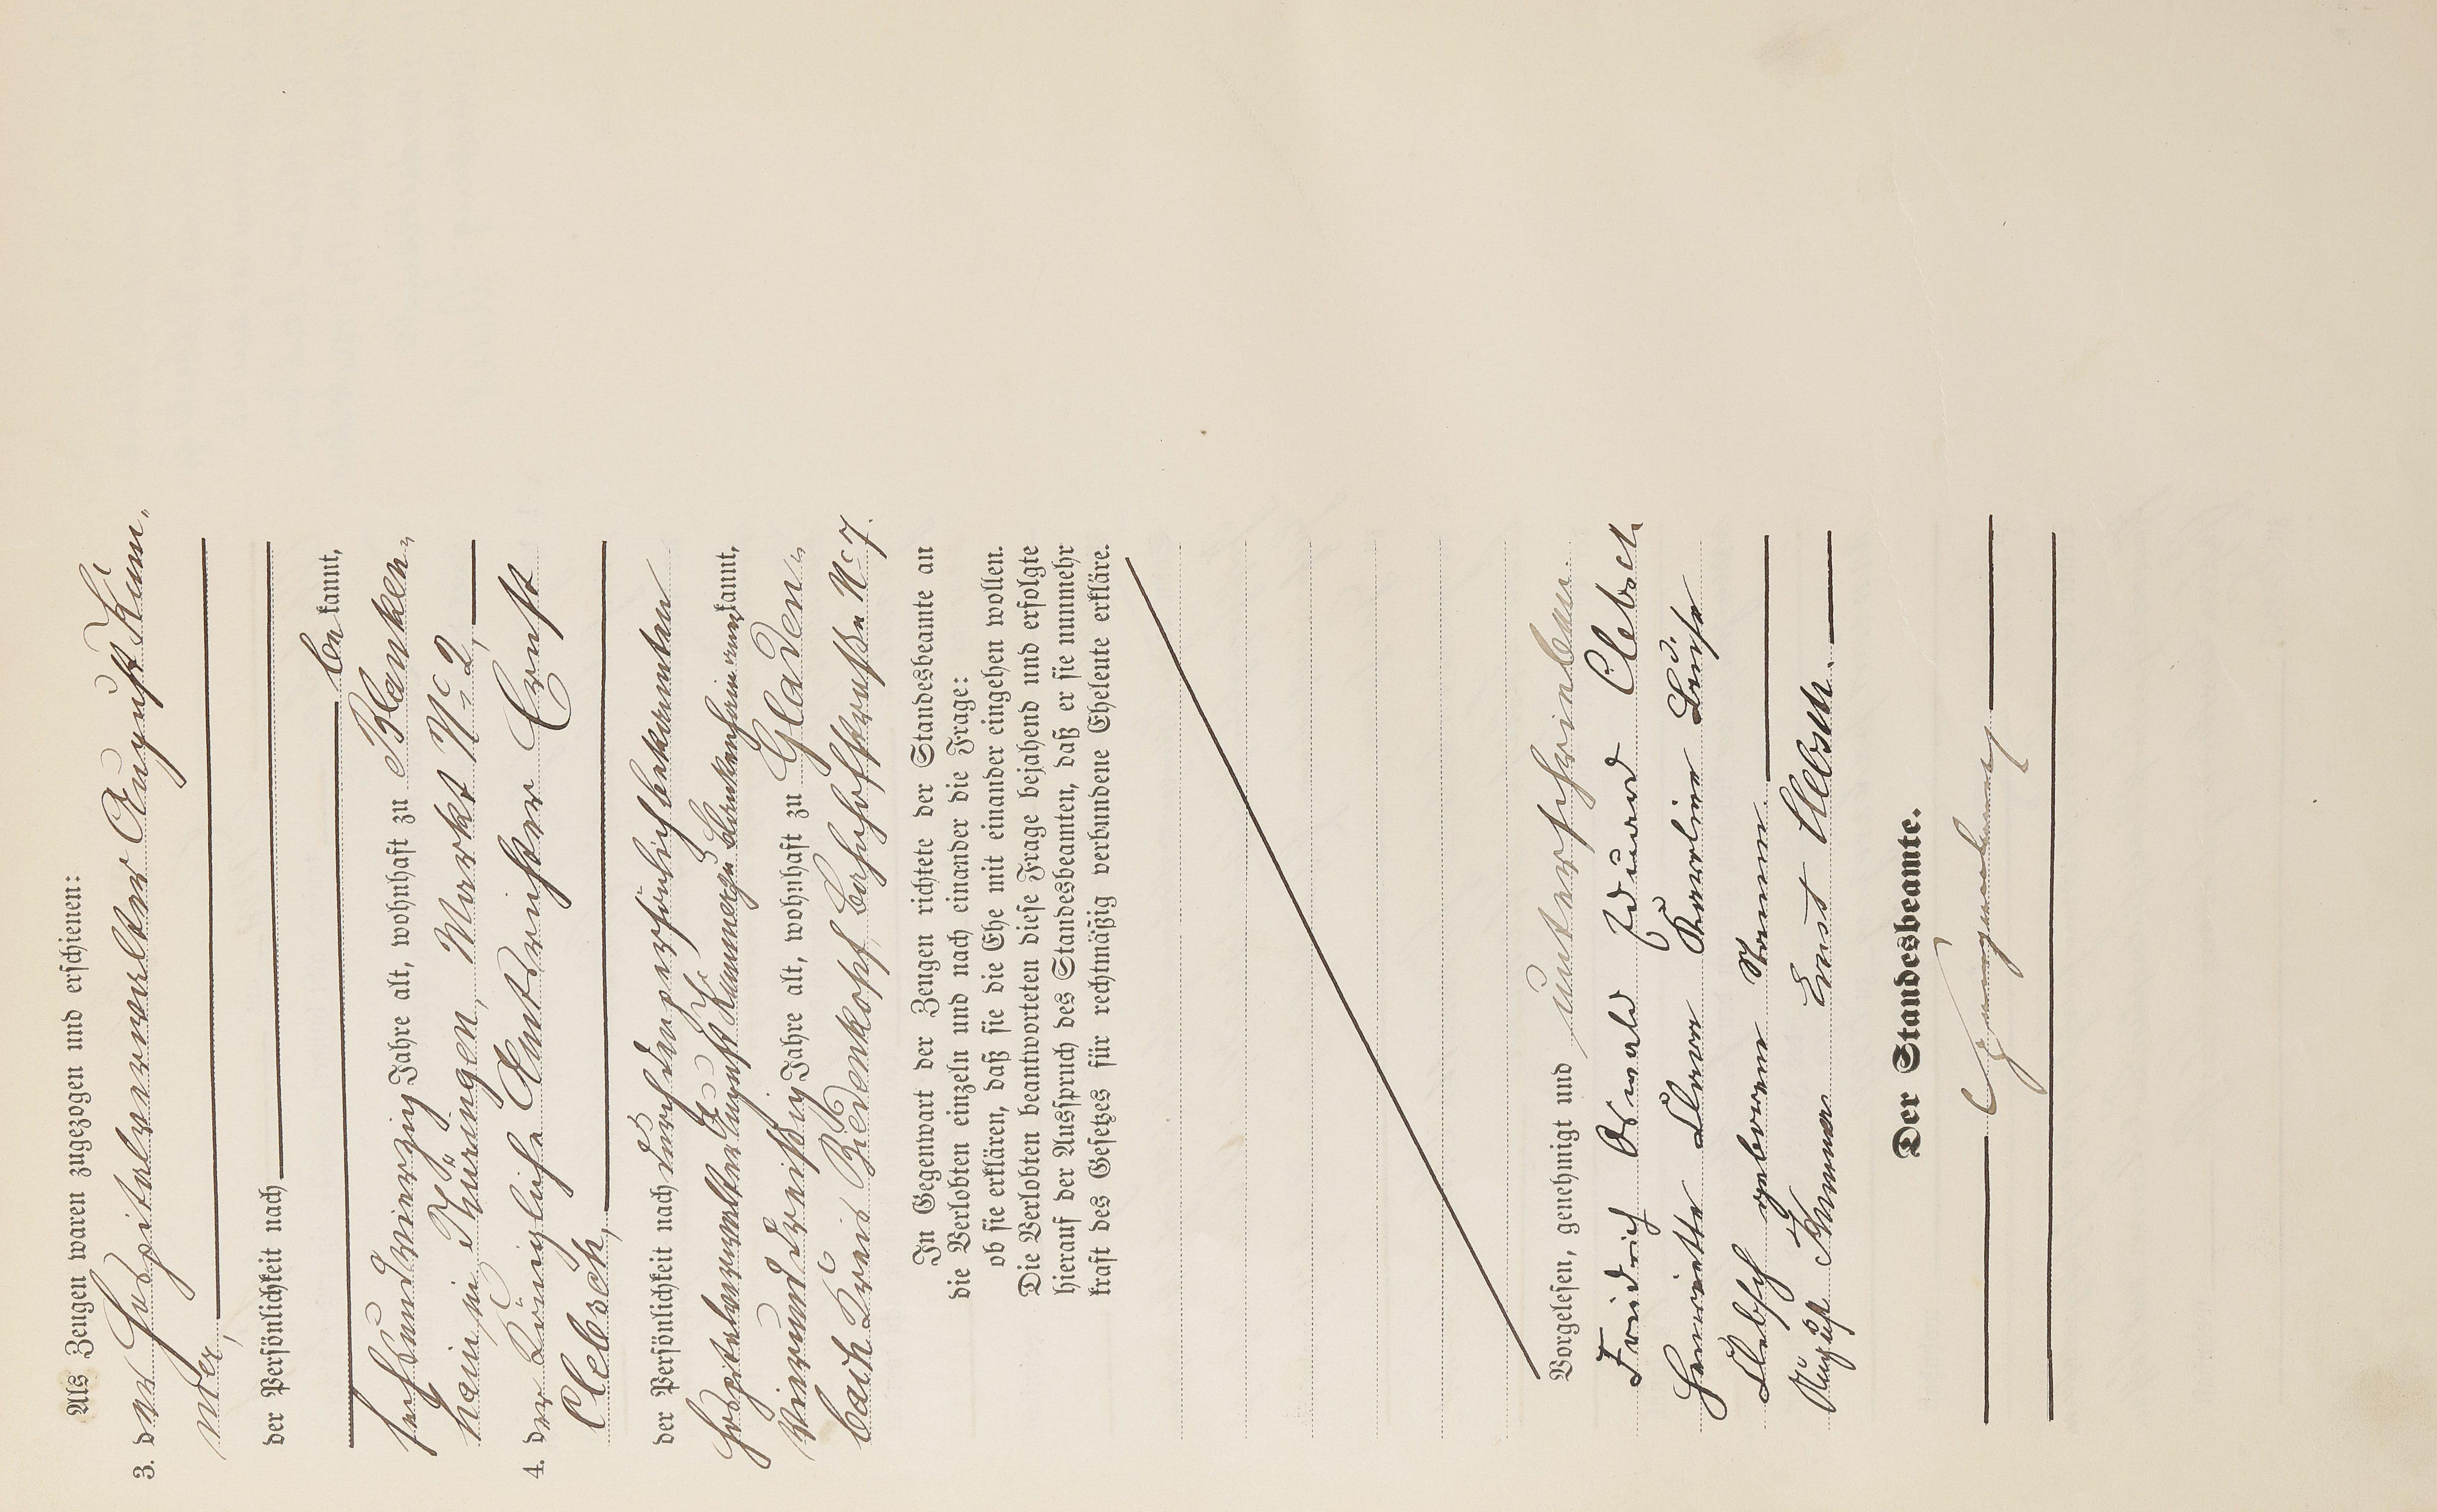 Als Zeugen waren zugezogen und erschienen:
3. der Hospitalverwalter August Kum-
mer,
der Persönlichkeit nach
be kannt,
sechsundvierzig Jahre alt, wohnhaft zu Blanken-
hain in Thüringen, Markt No 2,
4. der Königliche Amtsrichter Ernst
Clebsch,
der Persönlichkeit nach durch den persönlich bekannten
Hospitalverwalter August Kummer zu Blankenhain kannt,
vierunddreißig Jahre alt, wohnhaft zu Gladen-
bach Kreis Biedenkopf Bahnhofstraße No 7.
In Gegenwart der Zeugen richtete der Standesbeamte an
die Verlobten einzeln und nach einander die Frage:
ob sie erklären, daß sie die Ehe mit einander eingehen wollen.
Die Verlobten beantworteten diese Frage bejahend und erfolgte
hierauf der Ausspruch des Standesbeamten, daß er sie nunmehr
kraft des Gesetzes für rechtmäßig verbundene Eheleute erkläre.
Vorgelesen, genehmigt und unterschrieben.
Friedrich Oswald Eduard Clebsch
Henriette Clara Karoline Luise
Clebsch geborene
August Kummer Ernst Clebsch.
Der Standesbeamte.